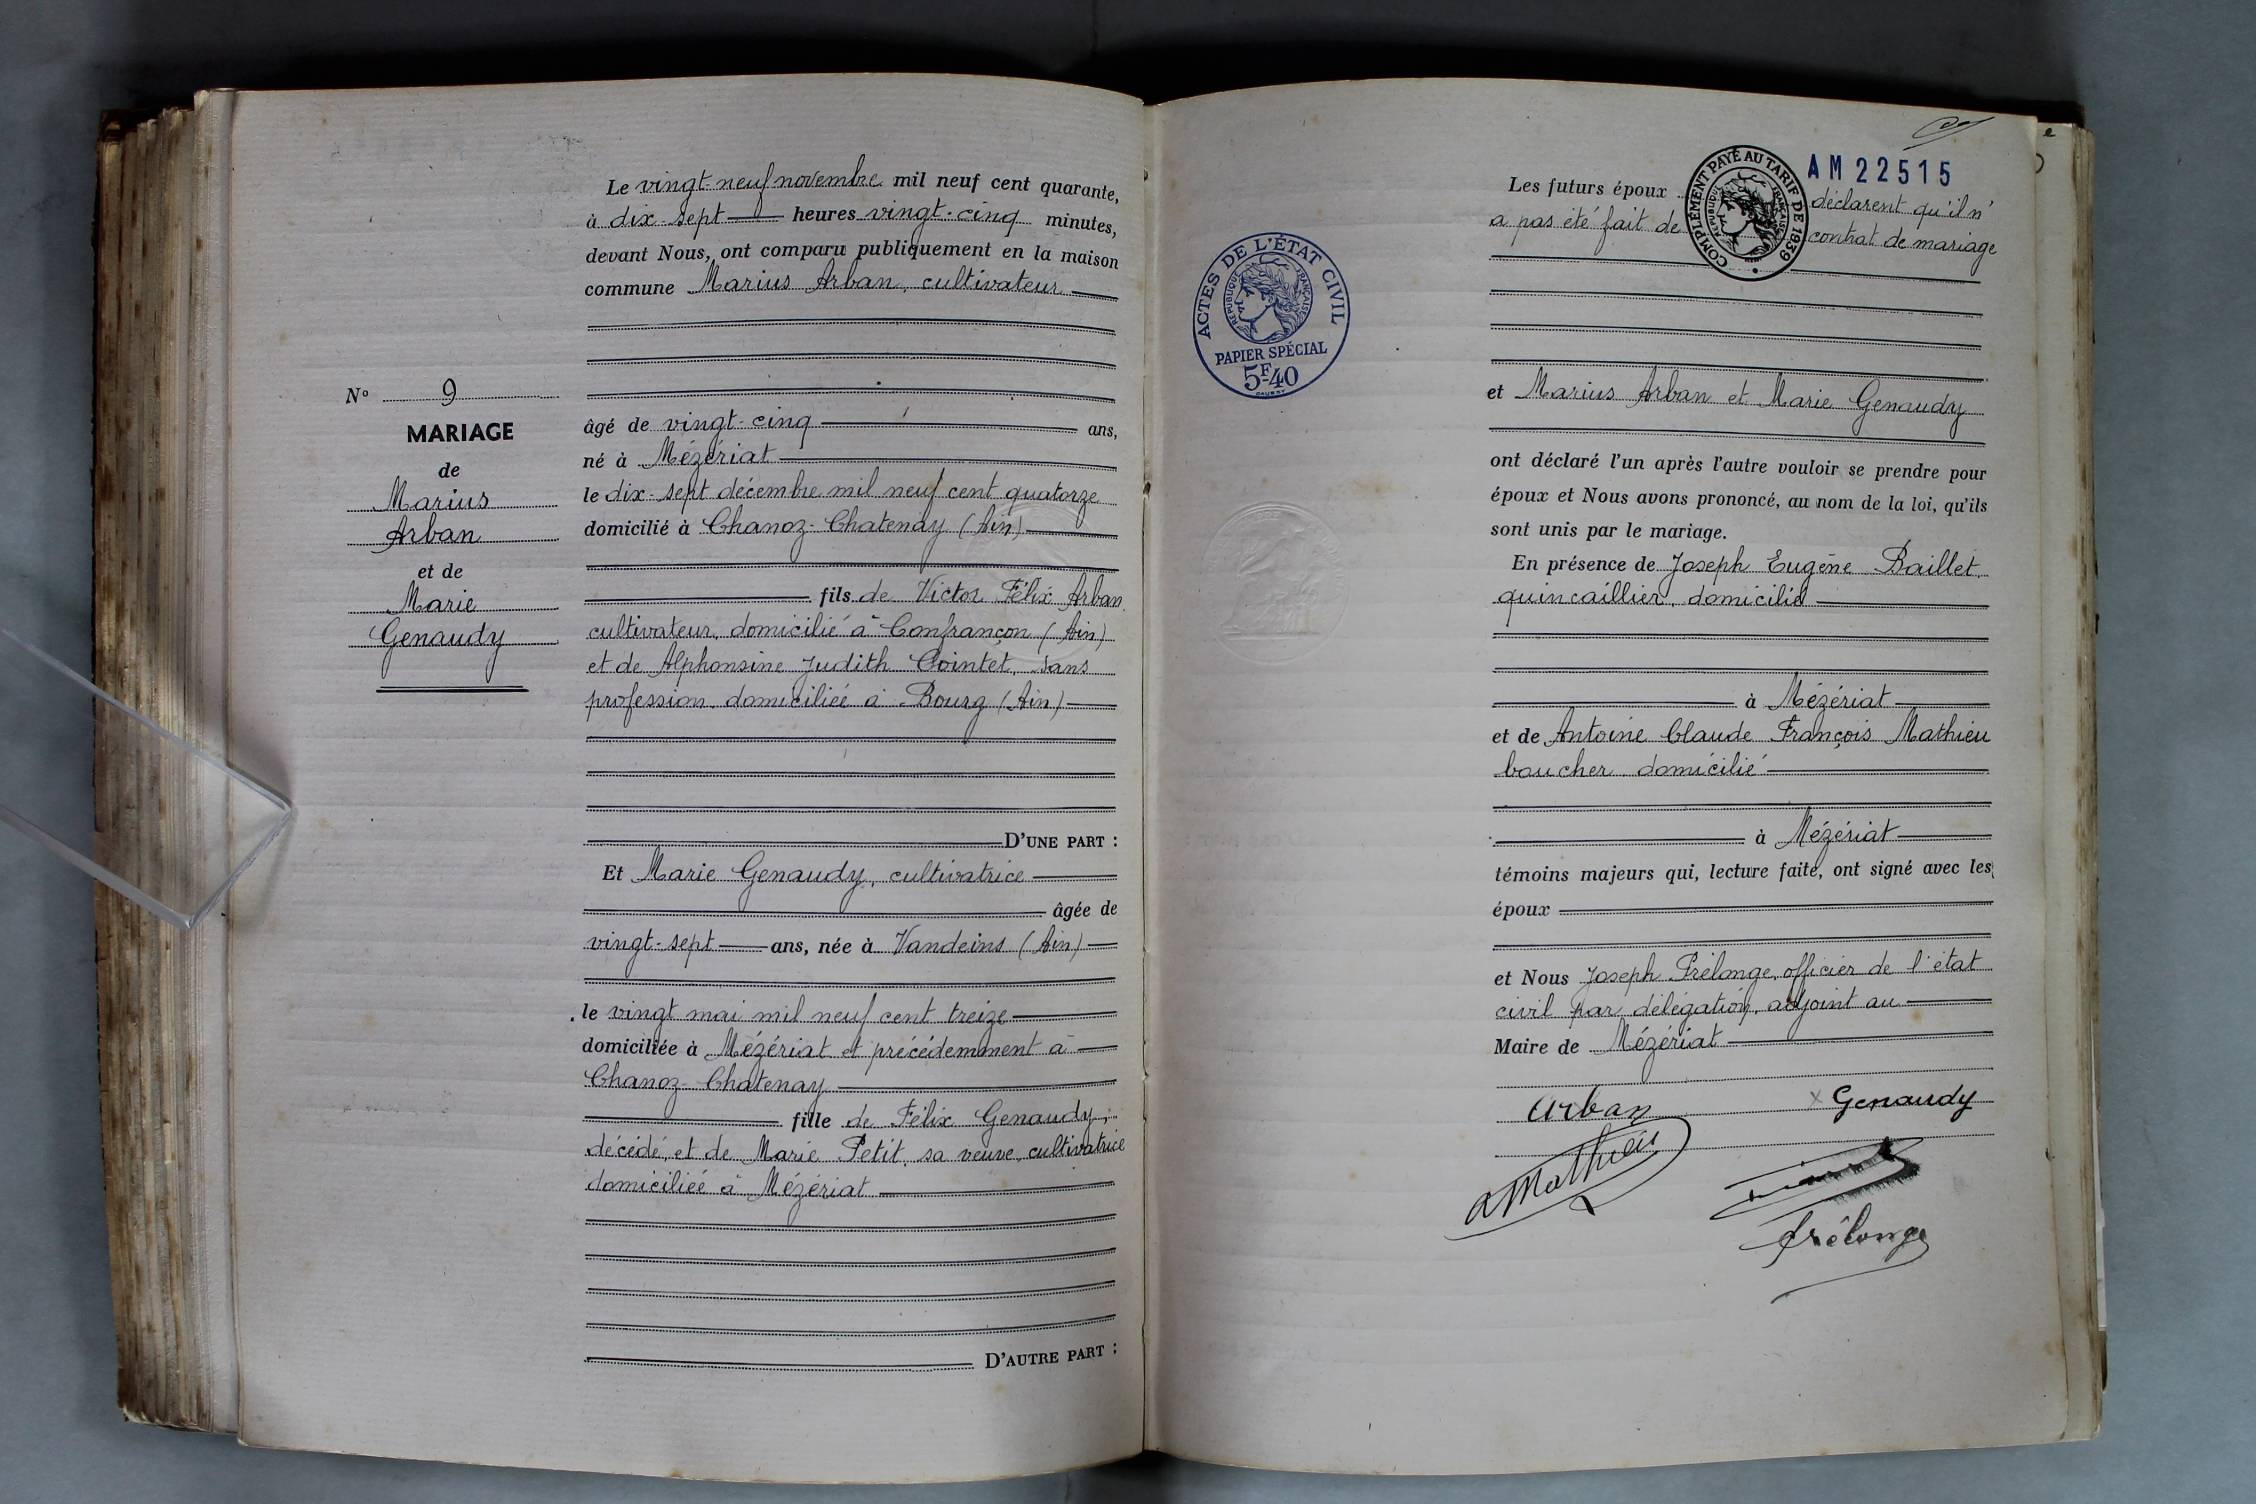 Le vingt-neuf novembre mil neuf cent quarante,
à dix-sept heures vingt-cinq minutes,
devant Nous, ont comparu publiquement en la maison
commune Marius Arban, cultivateur
N° 9
MARIAGE
de
Marius
Arban
et de
Marie
Genaudy
âgé de vingt-cinq ans,
né à Mézériat
le dix-sept décembre mil neuf cent quatorze
domicilié à Chanoz-Chatenay (Ain)
fils de Victor Félix Arban,
cultivateur, domicilié à Confrançon (Ain)
et de Alphonsine Judith Cointet, sans
profession, domiciliée à Bourg (Ain)
D'UNE PART :
Et Marie Genaudy, cultivatrice
âgée de
vingt-sept ans, née à Vandeins (Ain)
le vingt mai mil neuf cent treize
domiciliée à Mézériat et précédemment à
Chanoz-Chatenay
fille de Félix Genaudy,
décédé, et de Marie Petit, sa veuve, cultivatrice
domiciliée à Mézériat
D'AUTRE PART :
ACTES DE L'ÉTAT CIVIL
RÉPUBLIQUE FRANÇAISE
PAPIER SPÉCIAL
5F40
COMPLÉMENT PAYÉ AU TARIF DE 1939
RÉPUBLIQUE FRANÇAISE
AM 22515
Les futurs époux déclarent qu'il n'
a pas été fait de contrat de mariage
et Marius Arban et Marie Genaudy
ont déclaré l'un après l'autre vouloir se prendre pour
époux et Nous avons prononcé, au nom de la loi, qu'ils
sont unis par le mariage.
En présence de Joseph Eugène Baillet,
quincaillier, domicilié
à Mézériat
et de Antoine Claude François Mathieu
boucher, domicilié
à Mézériat
témoins majeurs qui, lecture faite, ont signé avec les
époux
et Nous Joseph Prélonge, officier de l'état
civil par délégation, adjoint au
Maire de Mézériat
Arban
x Genaudy
Mathieu
Prélonge